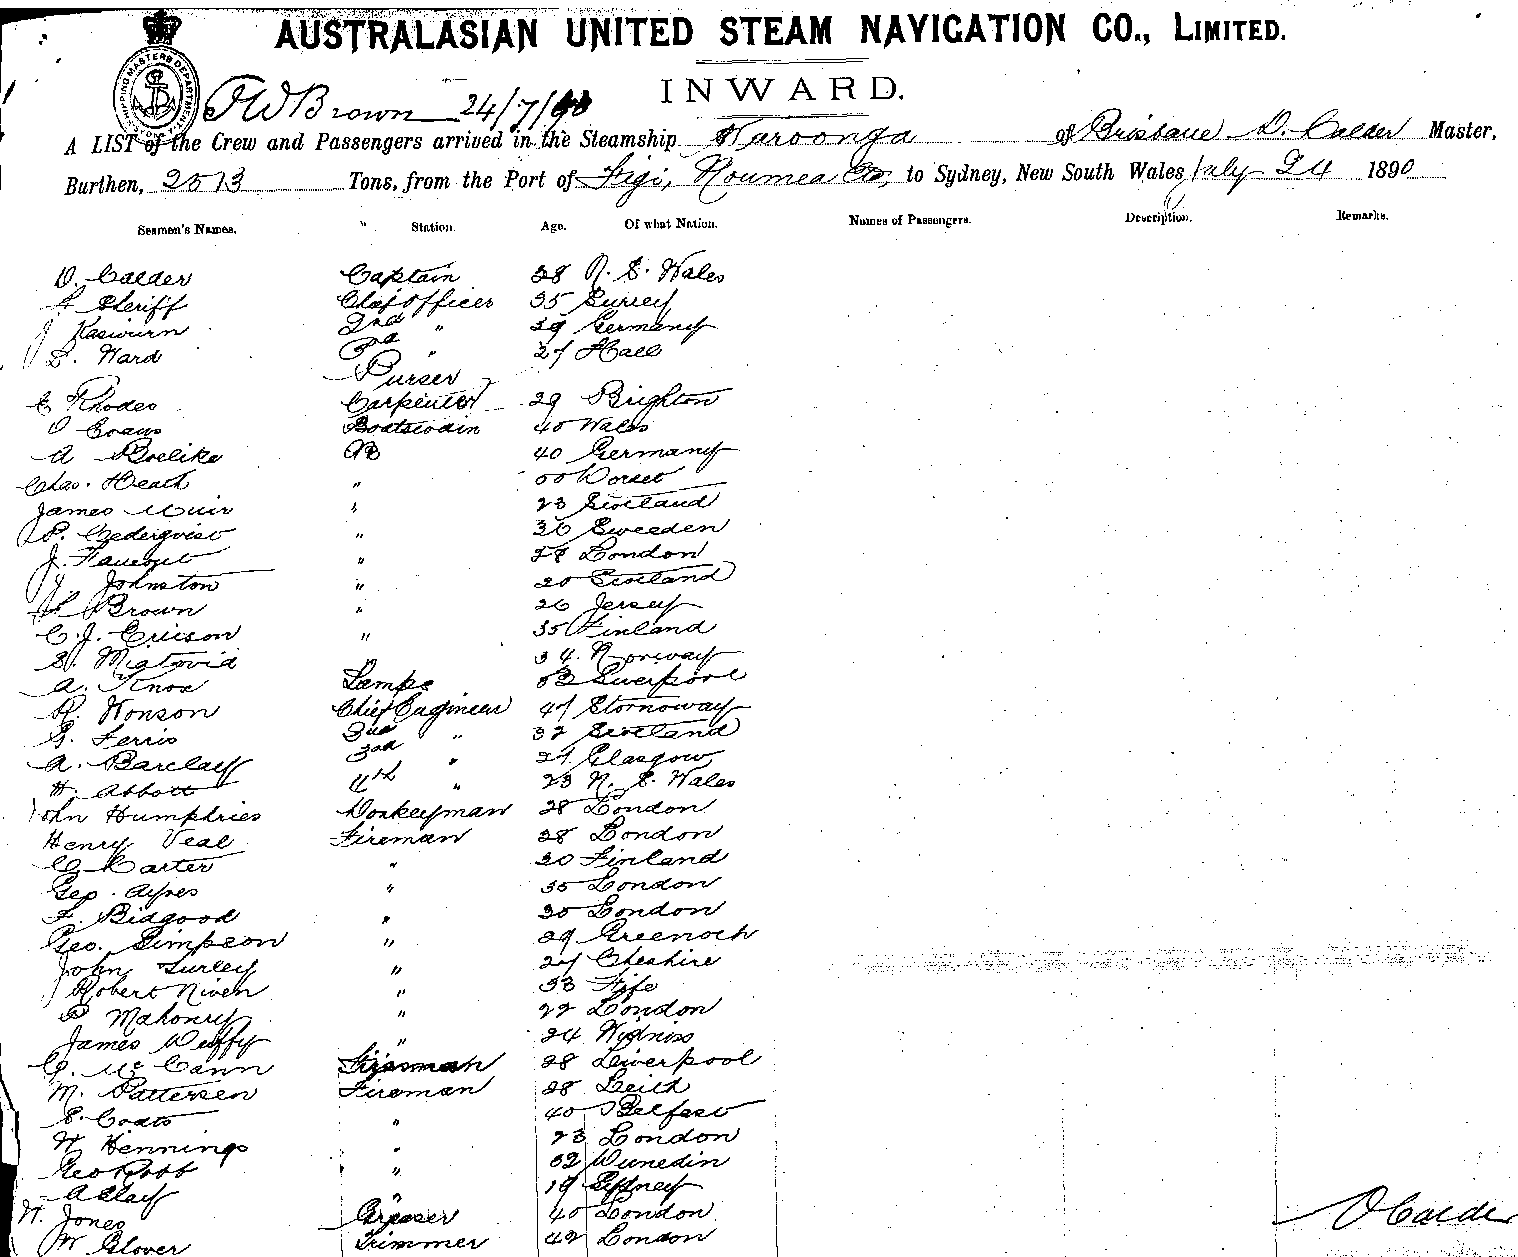 AUSTRALASIAN UNITED STEAM NAVIGATION CO., LIMITED.
INWARD.
SHIPPING MASTERS DEPARTMENT
24/7/90
A LIST of the Crew and Passengers arrived in the Steamship Waroonga of Brisbane D. Calder Master,
Burthen, 2513 Tons, from the Port of Figi, Noumea &c, to Sydney, New South Wales July 24 1890
Seamen's Names. " Station. Age. Of what Nation. Names of Passengers. Description. Remarks.
D. Calder Captain 38 N. S. Wales
Sheriff Chief Officer 35 Surrey
J 2nd " 29 Germany
S. Ward 3rd " 27 Hall
Purser
E Rhodes Carpenter 29 Brighton
O Evans Boatswain 40 Wales
A Boelike AB 40 Germany
Chas. Heath " Dorset
James Muir " 23 Scotland
P. Cederqvist " 36 Sweeden
J. " 28 London
J. Johnston " 20 Scotland
Brown " 26 Jersey
C. J. Ericson " 35 Finland
S. " 34 Norway
A. Knox Lamps 53 Liverpool
R. Wonson Chief Engineer 47 Stornoway
G. Ferris 2nd " 32 Scotland
A. Barclay 3rd " 27 Glasgow
H. Abbott 4th " 23 N. S. Wales
John Humphries Donkeyman 28 London
Henry Veal Fireman 28 London
C. Carter " 30 Finland
Geo. Ayres " 35 London
F. Bidgood " 30 London
Geo. Simpson " 29 Greenoch
John Turley " 27 Cheshire
Robert Niven " 33 Fife
P Mahoney " 22 London
James Duffy " 24 Widniss
C. McCann Fireman 28 Liverpool
M. Pattersen Fireman 28 Leith
S. Coats " 40 Belfast
W Hennings " 23 London
Geo Robb " 32 Dunedin
A Clay " 19 Sydney
W. Jones Greaser 40 London
W Glover Trimmer 42 London
D Calder